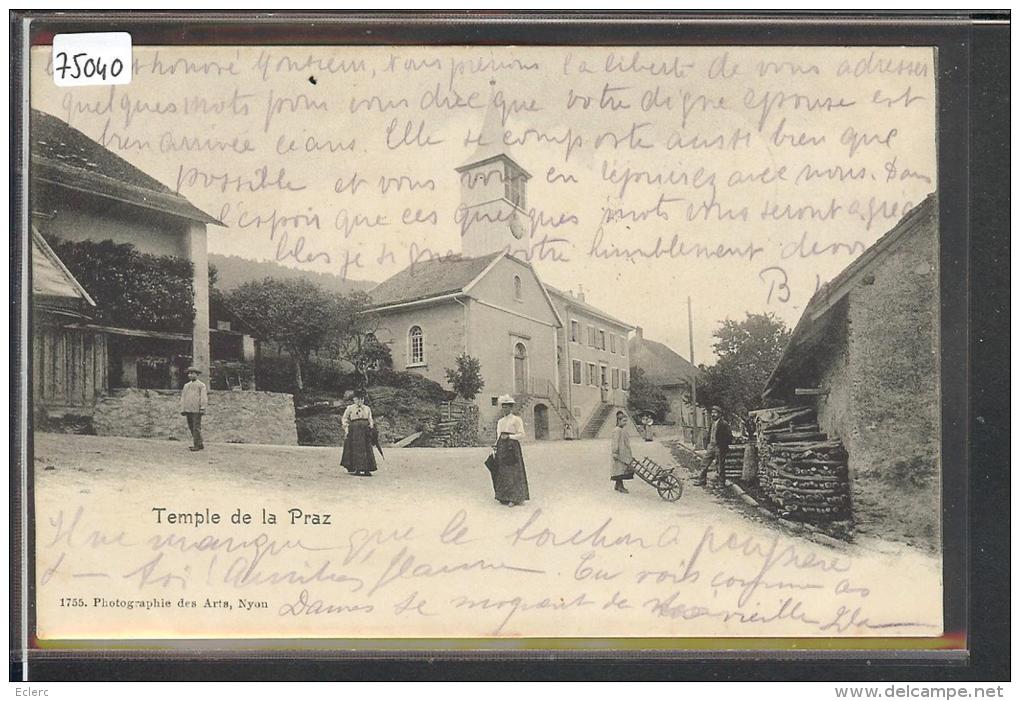 75040
honoré Monsieur, Nous prenons la liberté de vous adresser
quelques mots pour vous dire que votre digne épouse est
bien arrivée céans. Elle se comporte aussi bien que
possible et vous vous en réjouirez avec nous. Dans
l'espoir que ces quelques mots vous seront agréa
bles je signe votre humblement dévoué
B
Temple de la Praz
Il ne manque que le torchon à peigner
toi ! Amitiés Jeanne. Tu vois comme
1755. Photographie des Arts, Nyon
Dames se moquent de vieille
Eclerc
http://www.delcampe.net